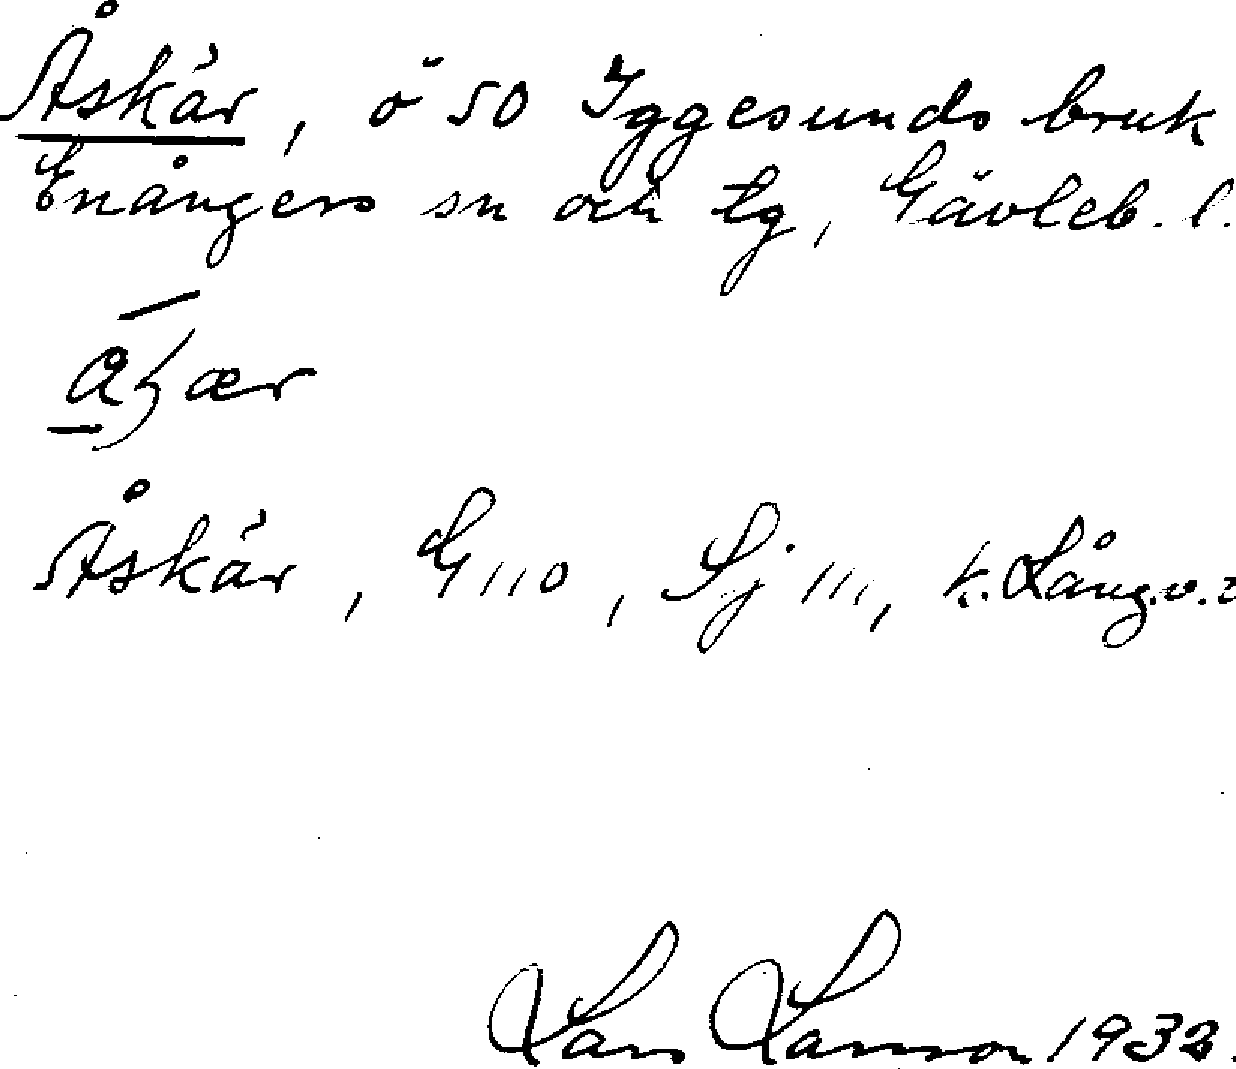 Åskär, ö SO Iggesunds bruk
Enångers sn och tg, Gävleb. l.
Åskär, G 110, Sj 111, k. Lång.v.
Lars Larsson 1932.